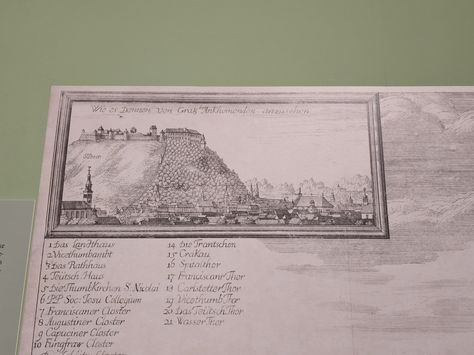 Wie es von Crak
1 Das Landthaus
2 Vicethumbambt
3 Das Rathhaus
4 Teütsch Haus
5 Die ThumbKirchen S. Nicolai
6 PP Soc: Iesu Collegium
7 Franciscaner Closter
8 Augustiner Closter
9 Capuciner Closter
10 Jungfraw Closter
14 Die Trantschen
15 Crakau
16 Spitalthor
17 Franciscanr Thor
18 Carlstetter Thor
19 Vicethumb Thor
20 Das Teütsch Thor
21 Wasser Thor